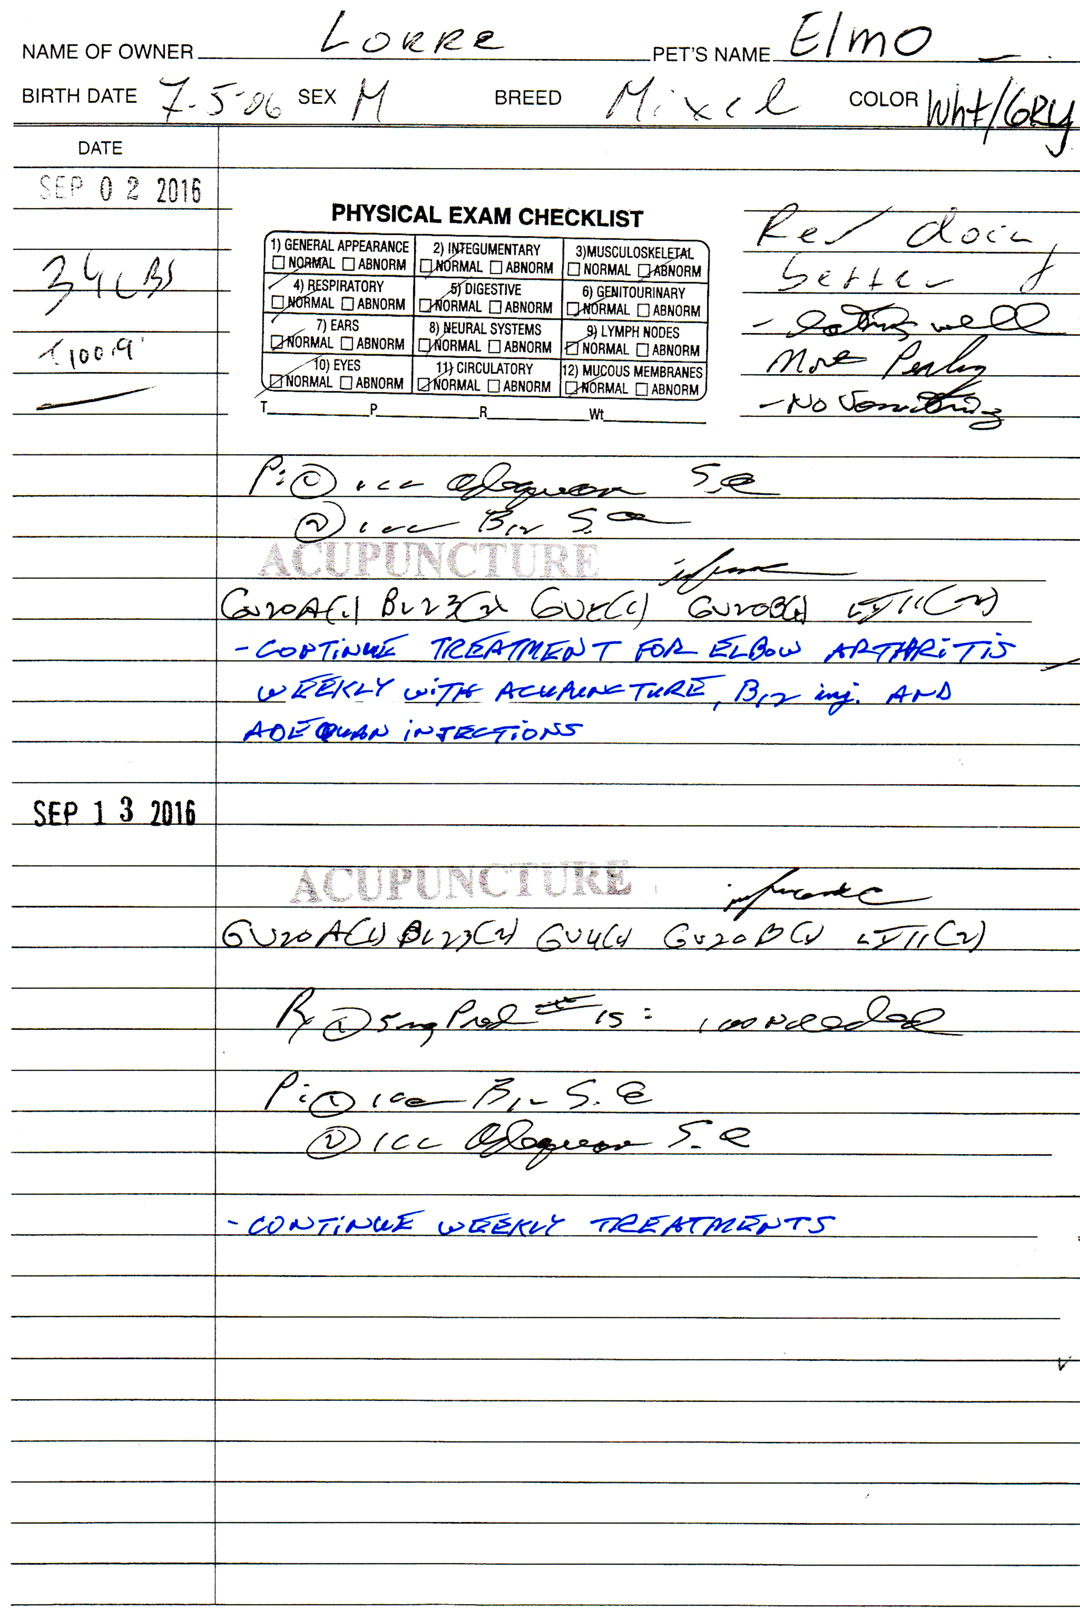 NAME OF OWNER Lorre PET'S NAME Elmo
BIRTH DATE 7-5-06 SEX M BREED Mixed COLOR Wht/Gry
DATE
SEP 02 2016
PHYSICAL EXAM CHECKLIST
1) GENERAL APPEARANCE 2) INTEGUMENTARY 3) MUSCULOSKELETAL
NORMAL ABNORM NORMAL ABNORM NORMAL ABNORM
4) RESPIRATORY 5) DIGESTIVE 6) GENITOURINARY
NORMAL ABNORM NORMAL ABNORM NORMAL ABNORM
7) EARS 8) NEURAL SYSTEMS 9) LYMPH NODES
NORMAL ABNORM NORMAL ABNORM NORMAL ABNORM
10) EYES 11) CIRCULATORY 12) MUCOUS MEMBRANES
NORMAL ABNORM NORMAL ABNORM NORMAL ABNORM
T P R Wt
34 LBS
T 100.9
Re/ doing
better
- eating well
More Perky
- No Vomiting
P: ① 1cc Adequan S.Q
② 1cc B12 S.Q
ACUPUNCTURE
GV20A(1) BL23(2) GV4(1) GV20B(1) LI11(2)
- CONTINUE TREATMENT FOR ELBOW ARTHRITIS
WEEKLY WITH ACUPUNCTURE, B12 inj. AND
ADEQUAN INJECTIONS
SEP 13 2016
ACUPUNCTURE
GV20A(1) BL23(2) GV4(1) GV20B(1) LI11(2)
Rx ① 5mg Pred # 15: needed
P: ① 1cc B12 S.Q
② 1cc Adequan S.Q
- CONTINUE WEEKLY TREATMENTS